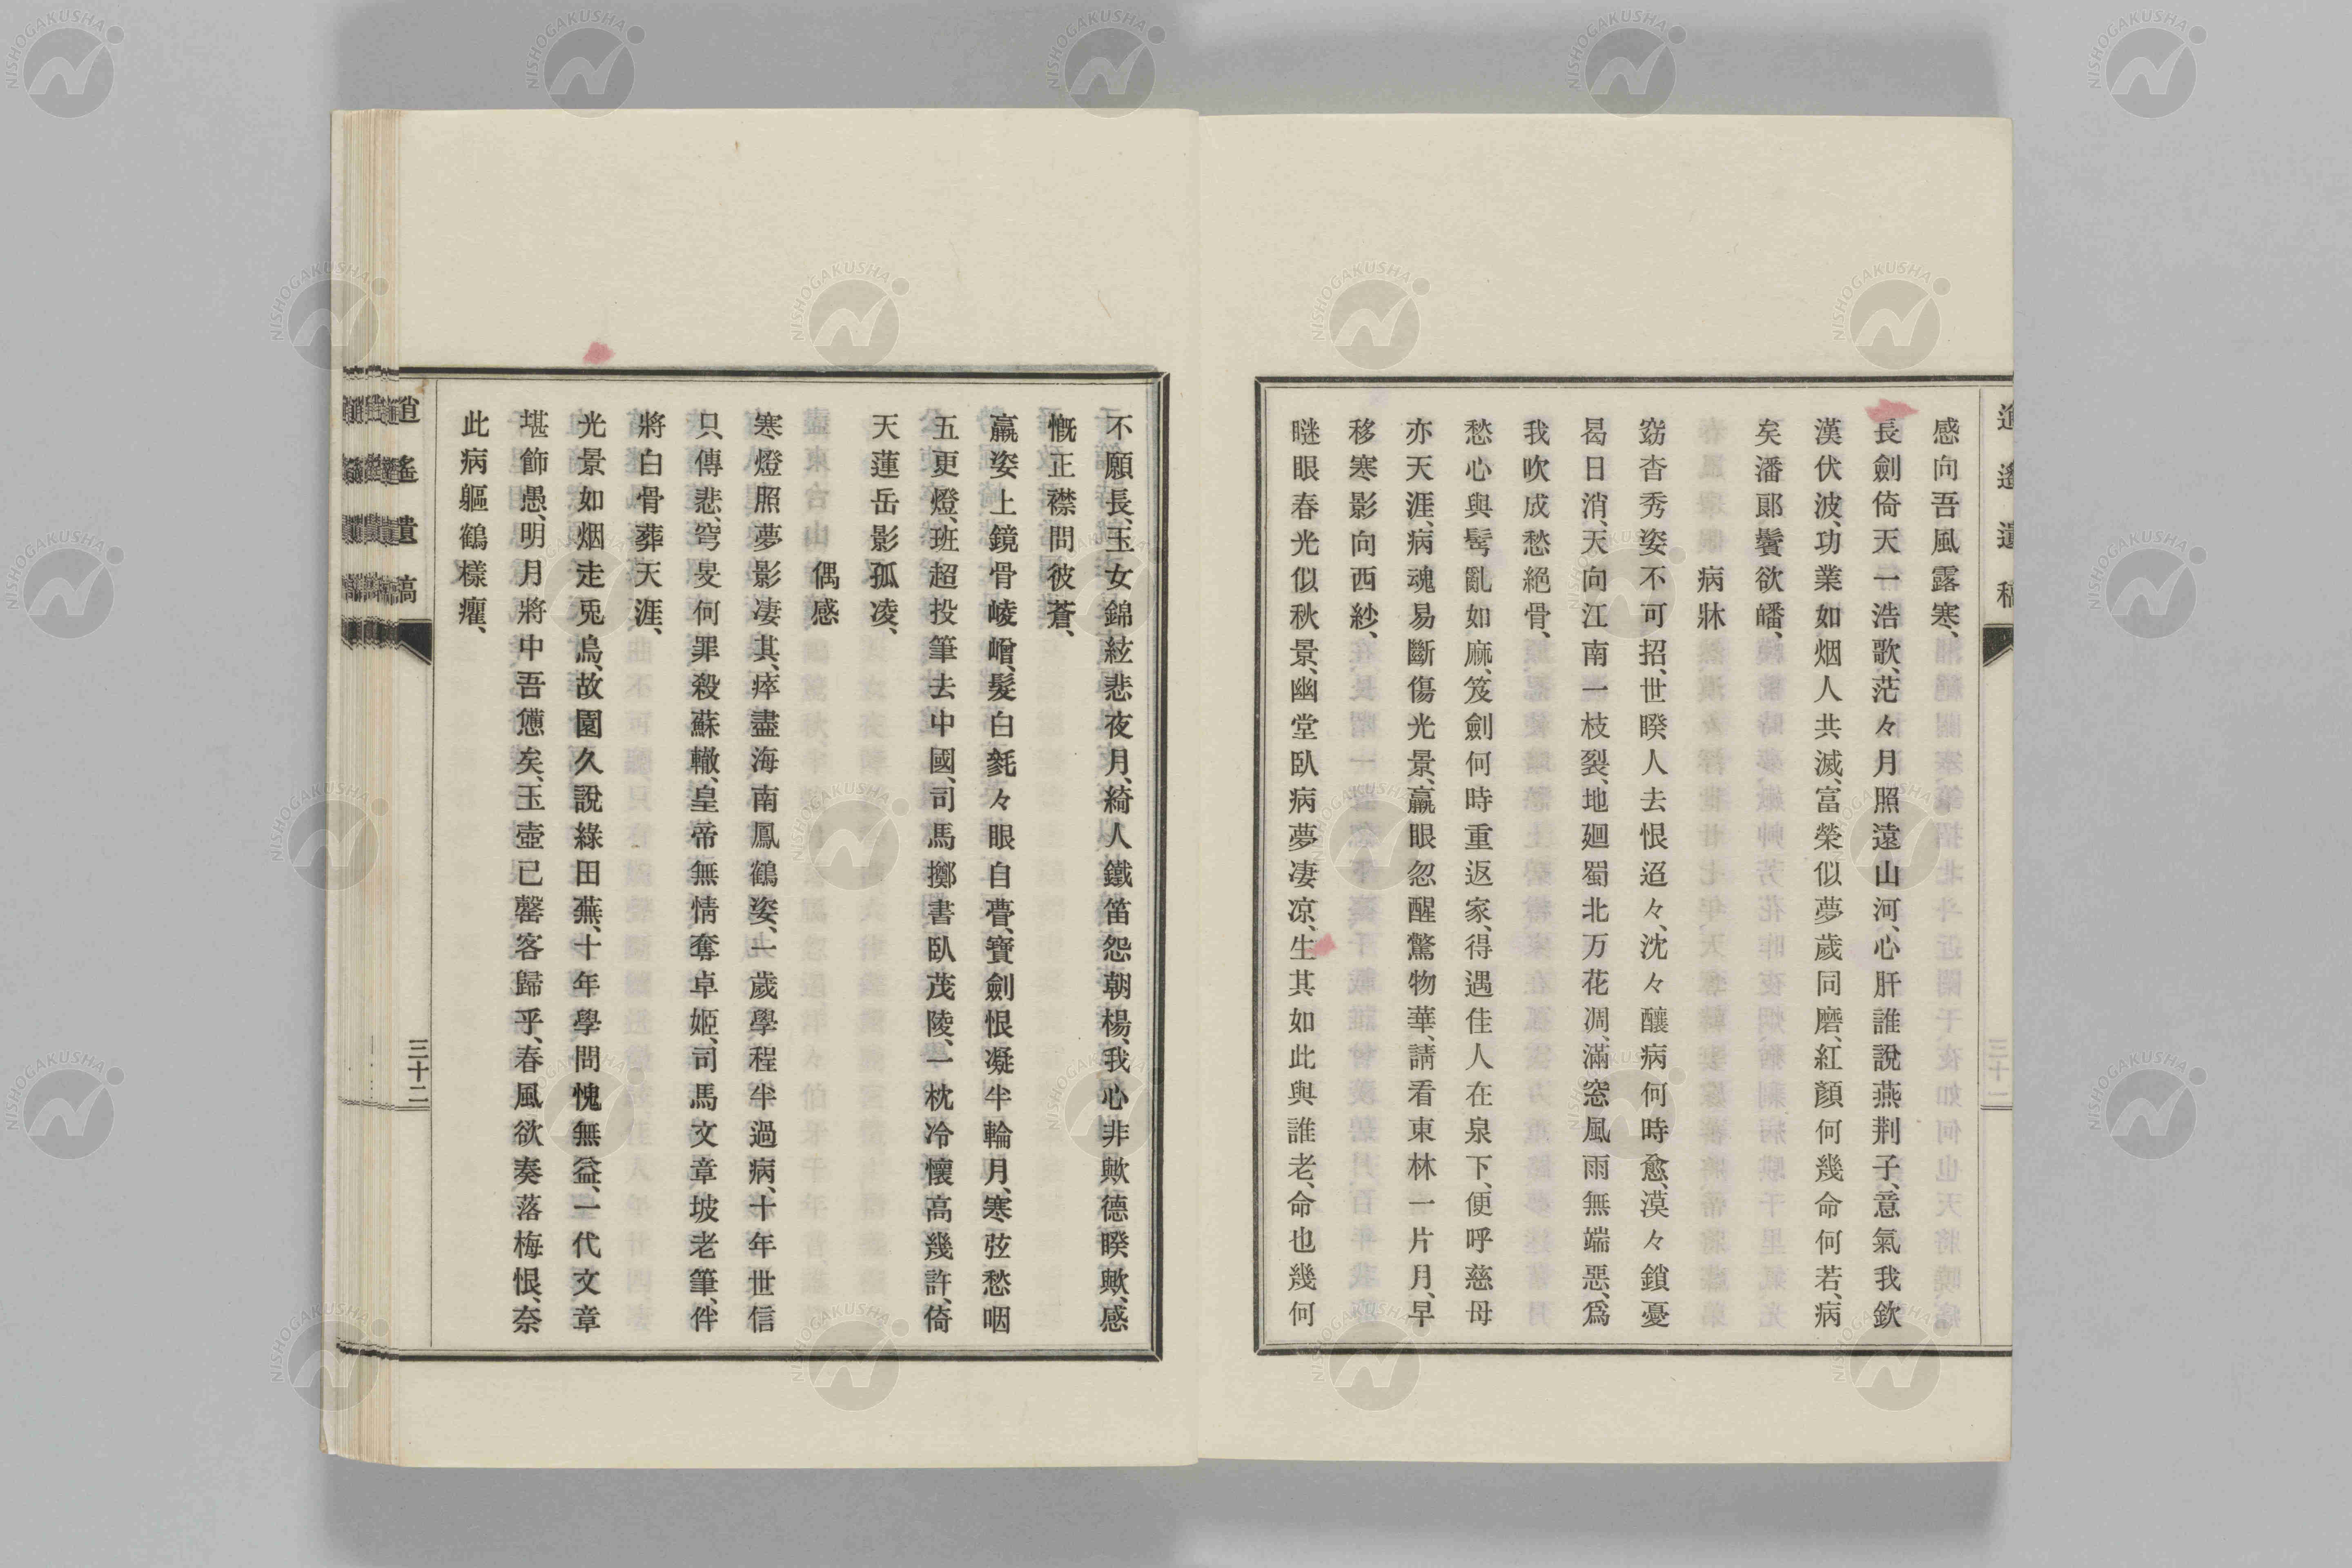 感向吾風露寒、
長劍倚天一浩歌、茫々月照遠山河、心肝誰說燕荆子、意氣我欽
漢伏波、功業如烟人共滅、富榮似夢歲同磨、紅顏何幾命何若、病
矣潘郞鬢欲皤、
病牀
窈杳秀姿不可招、世睽人去恨迢々、沈々釀病何時愈、漠々鎖憂
曷日消、天向江南一枝裂、地廻蜀北万花凋、滿窓風雨無端惡、爲
我吹成愁絕骨、
愁心與髩亂如麻、笈劍何時重返家、得遇佳人在泉下、便呼慈母
亦天涯、病魂易斷傷光景、羸眼忽醒驚物華、請看東林一片月、早
移寒影向西紗、
瞇眼春光似秋景、幽堂臥病夢凄凉、生其如此與誰老、命也幾何
不願長、玉女錦絃悲夜月、綺人鐵笛怨朝楊、我心非歟德睽歟、感
慨正襟問彼蒼、
羸姿上鏡骨崚嶒、髮白毿々眼自瞢、寶劍恨凝半輪月、寒弦愁咽
五更燈、班超投筆去中國、司馬擲書臥茂陵、一枕冷懷高幾許、倚
天蓮岳影孤凌、
偶感
寒燈照夢影凄其、瘁盡海南鳳鶴姿、一歲學程半過病、十年世信
只傳悲、穹旻何罪殺蘇轍、皇帝無情奪卓姬、司馬文章坡老筆、伴
將白骨葬天涯、
光景如烟走兎烏、故園久說綠田蕪、十年學問愧無益、一代文章
堪飾愚、明月將中吾憊矣、玉壺已罄客歸乎、春風欲奏落梅恨、奈
此病軀鶴樣癯、
逍遙遺稿
三十二